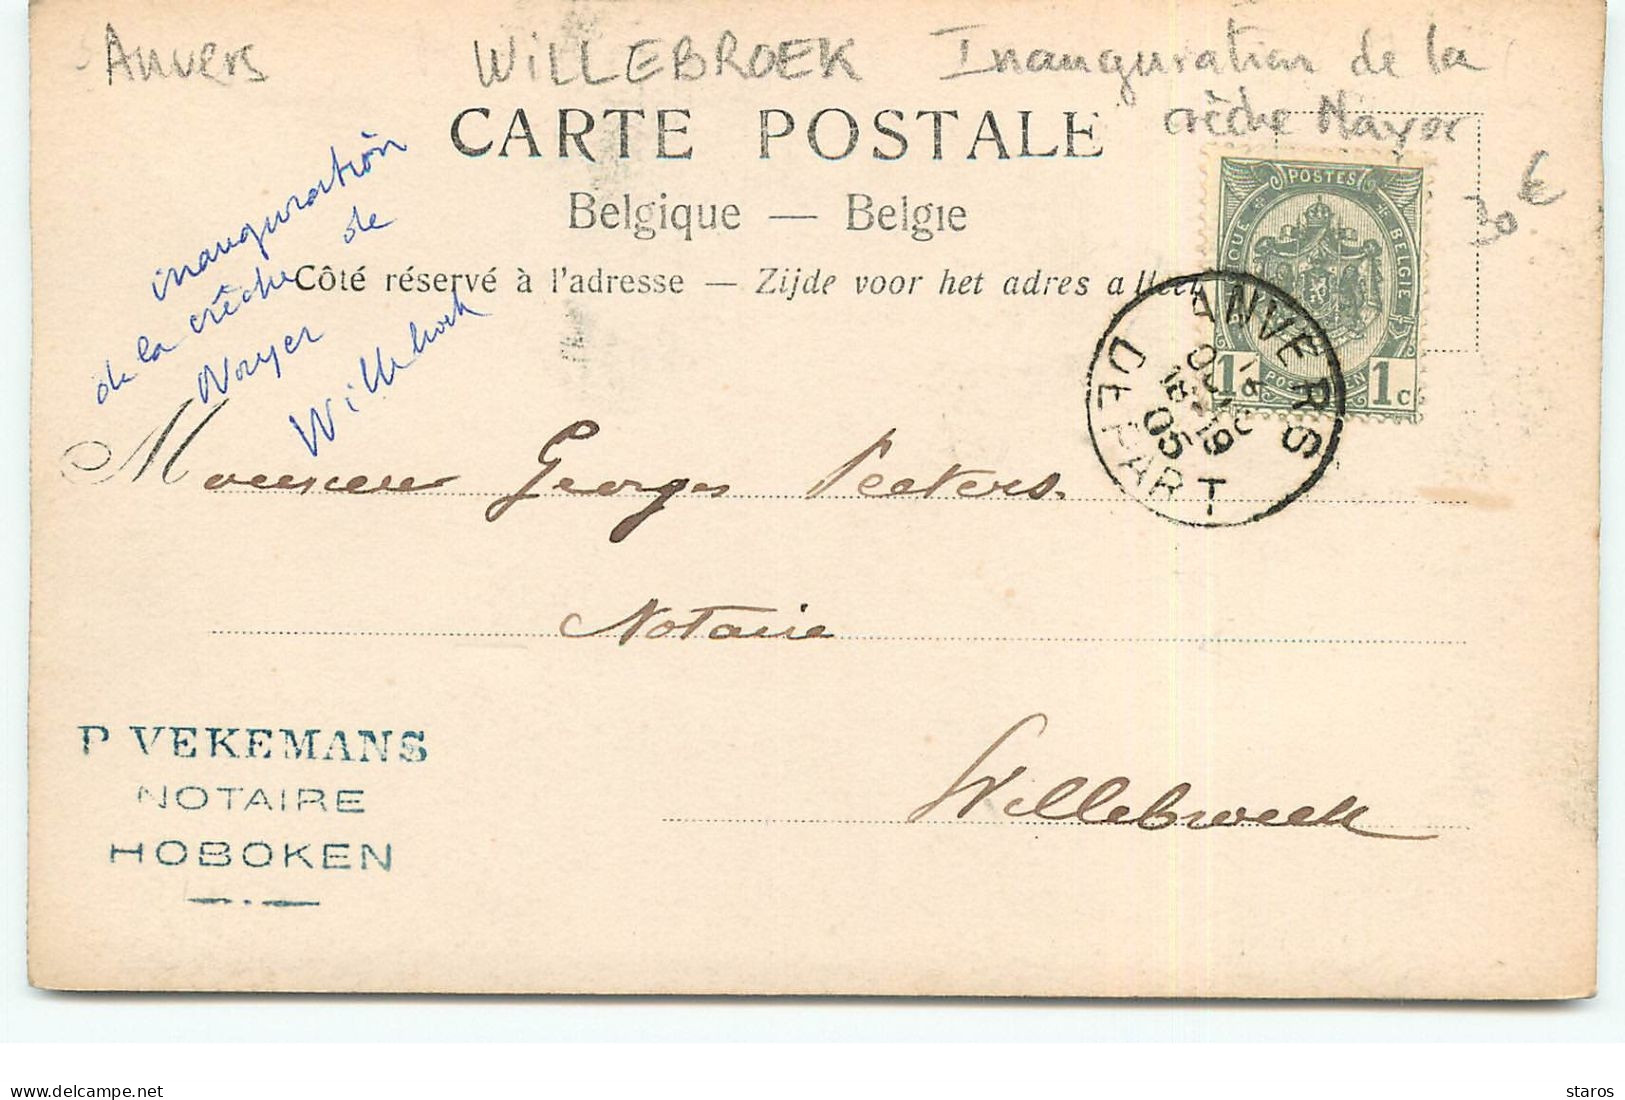 Anvers WILLEBROEK Inauguration de la
crèche Mayer
30 €
CARTE POSTALE
Belgique — Belgie
Côté réservé à l'adresse — Zijde voor het adres alleen
inauguration
de la crêche de
Nouyer
Willebroek
POSTES
BELGIE
1c
1c
ANVERS
DEPART
18-19
05
Monsieur Georges Peeters
Notaire
Willebroeck
P. VEKEMANS
NOTAIRE
HOBOKEN
staros